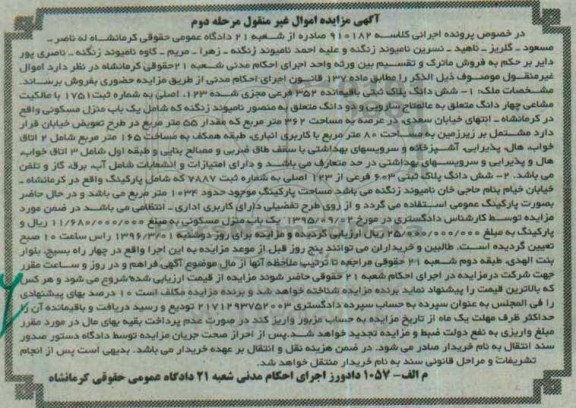 آگهی مزایده اموال غیر منقول مرحله دوم
در خصوص پرونده اجرائی کلاسه ۹۱۰۱۸۲ صادره از شعبه ۲۱ دادگاه عمومی حقوقی کرمانشاه له ناصر ـ
مسعود ـ گلریز ـ ناهید ـ نسرین نامیوند زنگنه و علیه احمد نامیوند زنگنه ـ زهرا ـ مریم ـ کاوه نامیوند زنگنه ـ ناصری پور
دایر بر حکم به فروش ماترک و تقسیم بین ورثه واحد اجرای احکام مدنی شعبه ۲۱حقوقی کرمانشاه در نظر دارد اموال
غیرمنقول موصوف ذیل الذکر را مطابق ماده ۱۳۷ قانون اجرای احکام مدنی از طریق مزایده حضوری بفروش برساند.
مشخصات ملک: ۱- شش دانگ پلاک ثبتی باقیمانده ۳۵۲ فرعی مجزی شده ۱۲۳. اصلی به شماره ثبت۱۷۵۱ با مالکیت
مشاعی چهار دانگ متعلق به عالمتاج ساروبی و دو دانگ متعلق به منصور نامیوند زنگنه که شامل یک باب منزل مسکونی واقع
در کرمانشاه ـ انتهای خیابان سعدی. در عرصه به مساحت ۳۶۲ متر مربع که مقدار ۵۵ متر مربع در طرح تعویض خیابان قرار
دارد مشتمل بر زیرزمین به مساحت ۸۰ متر مربع با کاربری انباری، طبقه همکف به مساحت ۱۶۵ متر مربع شامل ۲ اتاق
خواب، هال، پذیرایی، آشپزخانه و سرویسهای بهداشتی با سقف طاق ضربی و مصالح بنایی و طبقه اول شامل ۳ اتاق خواب،
هال و پذیرایی و سرویسهای بهداشتی در حد متعارف می باشد و دارای امتیازات و انشعابات شامل آب، برق، گاز و تلفن
می باشد. ۲- شش دانگ پلاک ثبتی ۶۰۳ فرعی از ۱۲۳ اصلی به شماره ثبت ۷۸۸۷ که شامل پارکینگ واقع در کرمانشاه ـ
خیابان خیام بنام حاجی خان نامیوند زنگنه می باشد مساحت پارکینگ موجود حدود ۱۰۳۴ متر مربع می باشد و در حال حاضر
بصورت پارکینگ عمومی استفاده می گردد و از روی طرح تفضیلی دارای کاربری اداری ـ انتظامی می باشد در ضمن مورد
مزایده توسط کارشناس دادگستری در مورخ ۱۳۹۵/۰۹/۰۲ یک باب منزل مسکونی به مبلغ ۱۱/۶۸۰/۰۰۰/۰۰۰ ریال و
پارکینگ به مبلغ ۲۵/۸۵۰/۰۰۰/۰۰۰ ریال ارزیابی گردیده و مزایده در روز دوشنبه ۱۳۹۶/۳/۰۱ راس ساعت ۱۰ صبح
تعیین گردیده است. طالبین و خریداران می توانند پنج روز قبل از موعد مزایده به این اجرا واقع در چهار راه بسیج، بلوار
بنت الهدی، طبقه دوم شعبه ۲۱ حقوقی مراجعه تا ترتیب ملاحظه آنها از مال موضوع آگهی فراهم و در روز و ساعت مقرر
جهت شرکت درمزایده در اجرای احکام شعبه ۲۱ حقوقی حاضر شوند مزایده از قیمت ارزیابی شده شروع می شود و هر کس
که بالاترین قیمت را پیشنهاد نماید برنده مزایده شناخته خواهد شد و برنده مزایده مکلف است ۱۰ درصد بهای پیشنهادی
را فی المجلس به عنوان سپرده به حساب سپرده دادگستری ۲۱۷۱۲۹۳۷۵۲۰۰۳ تودیع و رسید دریافت و باقیمانده آن را
حداکثر ظرف مهلت یک ماه از تاریخ مزایده به حساب مزبور واریز کند در صورت عدم پرداخت بقیه بهای مال در مورد مقرر
مبلغ واریزی به نفع دولت ضبط و مزایده تجدید خواهد شد.پس از احراز صحت جریان مزایده توسط دادگاه دستور صدور
سند انتقال به نام خریدار صادر می شود. در ضمن هزینه نقل و انتقال بر عهده خریدار می باشد. بدیهی است پس از انجام
تشریفات و مراحل قانونی سند به نام خریدار منتقل خواهد شد.
م الف- ۱۰۵۷ دادورز اجرای احکام مدنی شعبه ۲۱ دادگاه عمومی حقوقی کرمانشاه